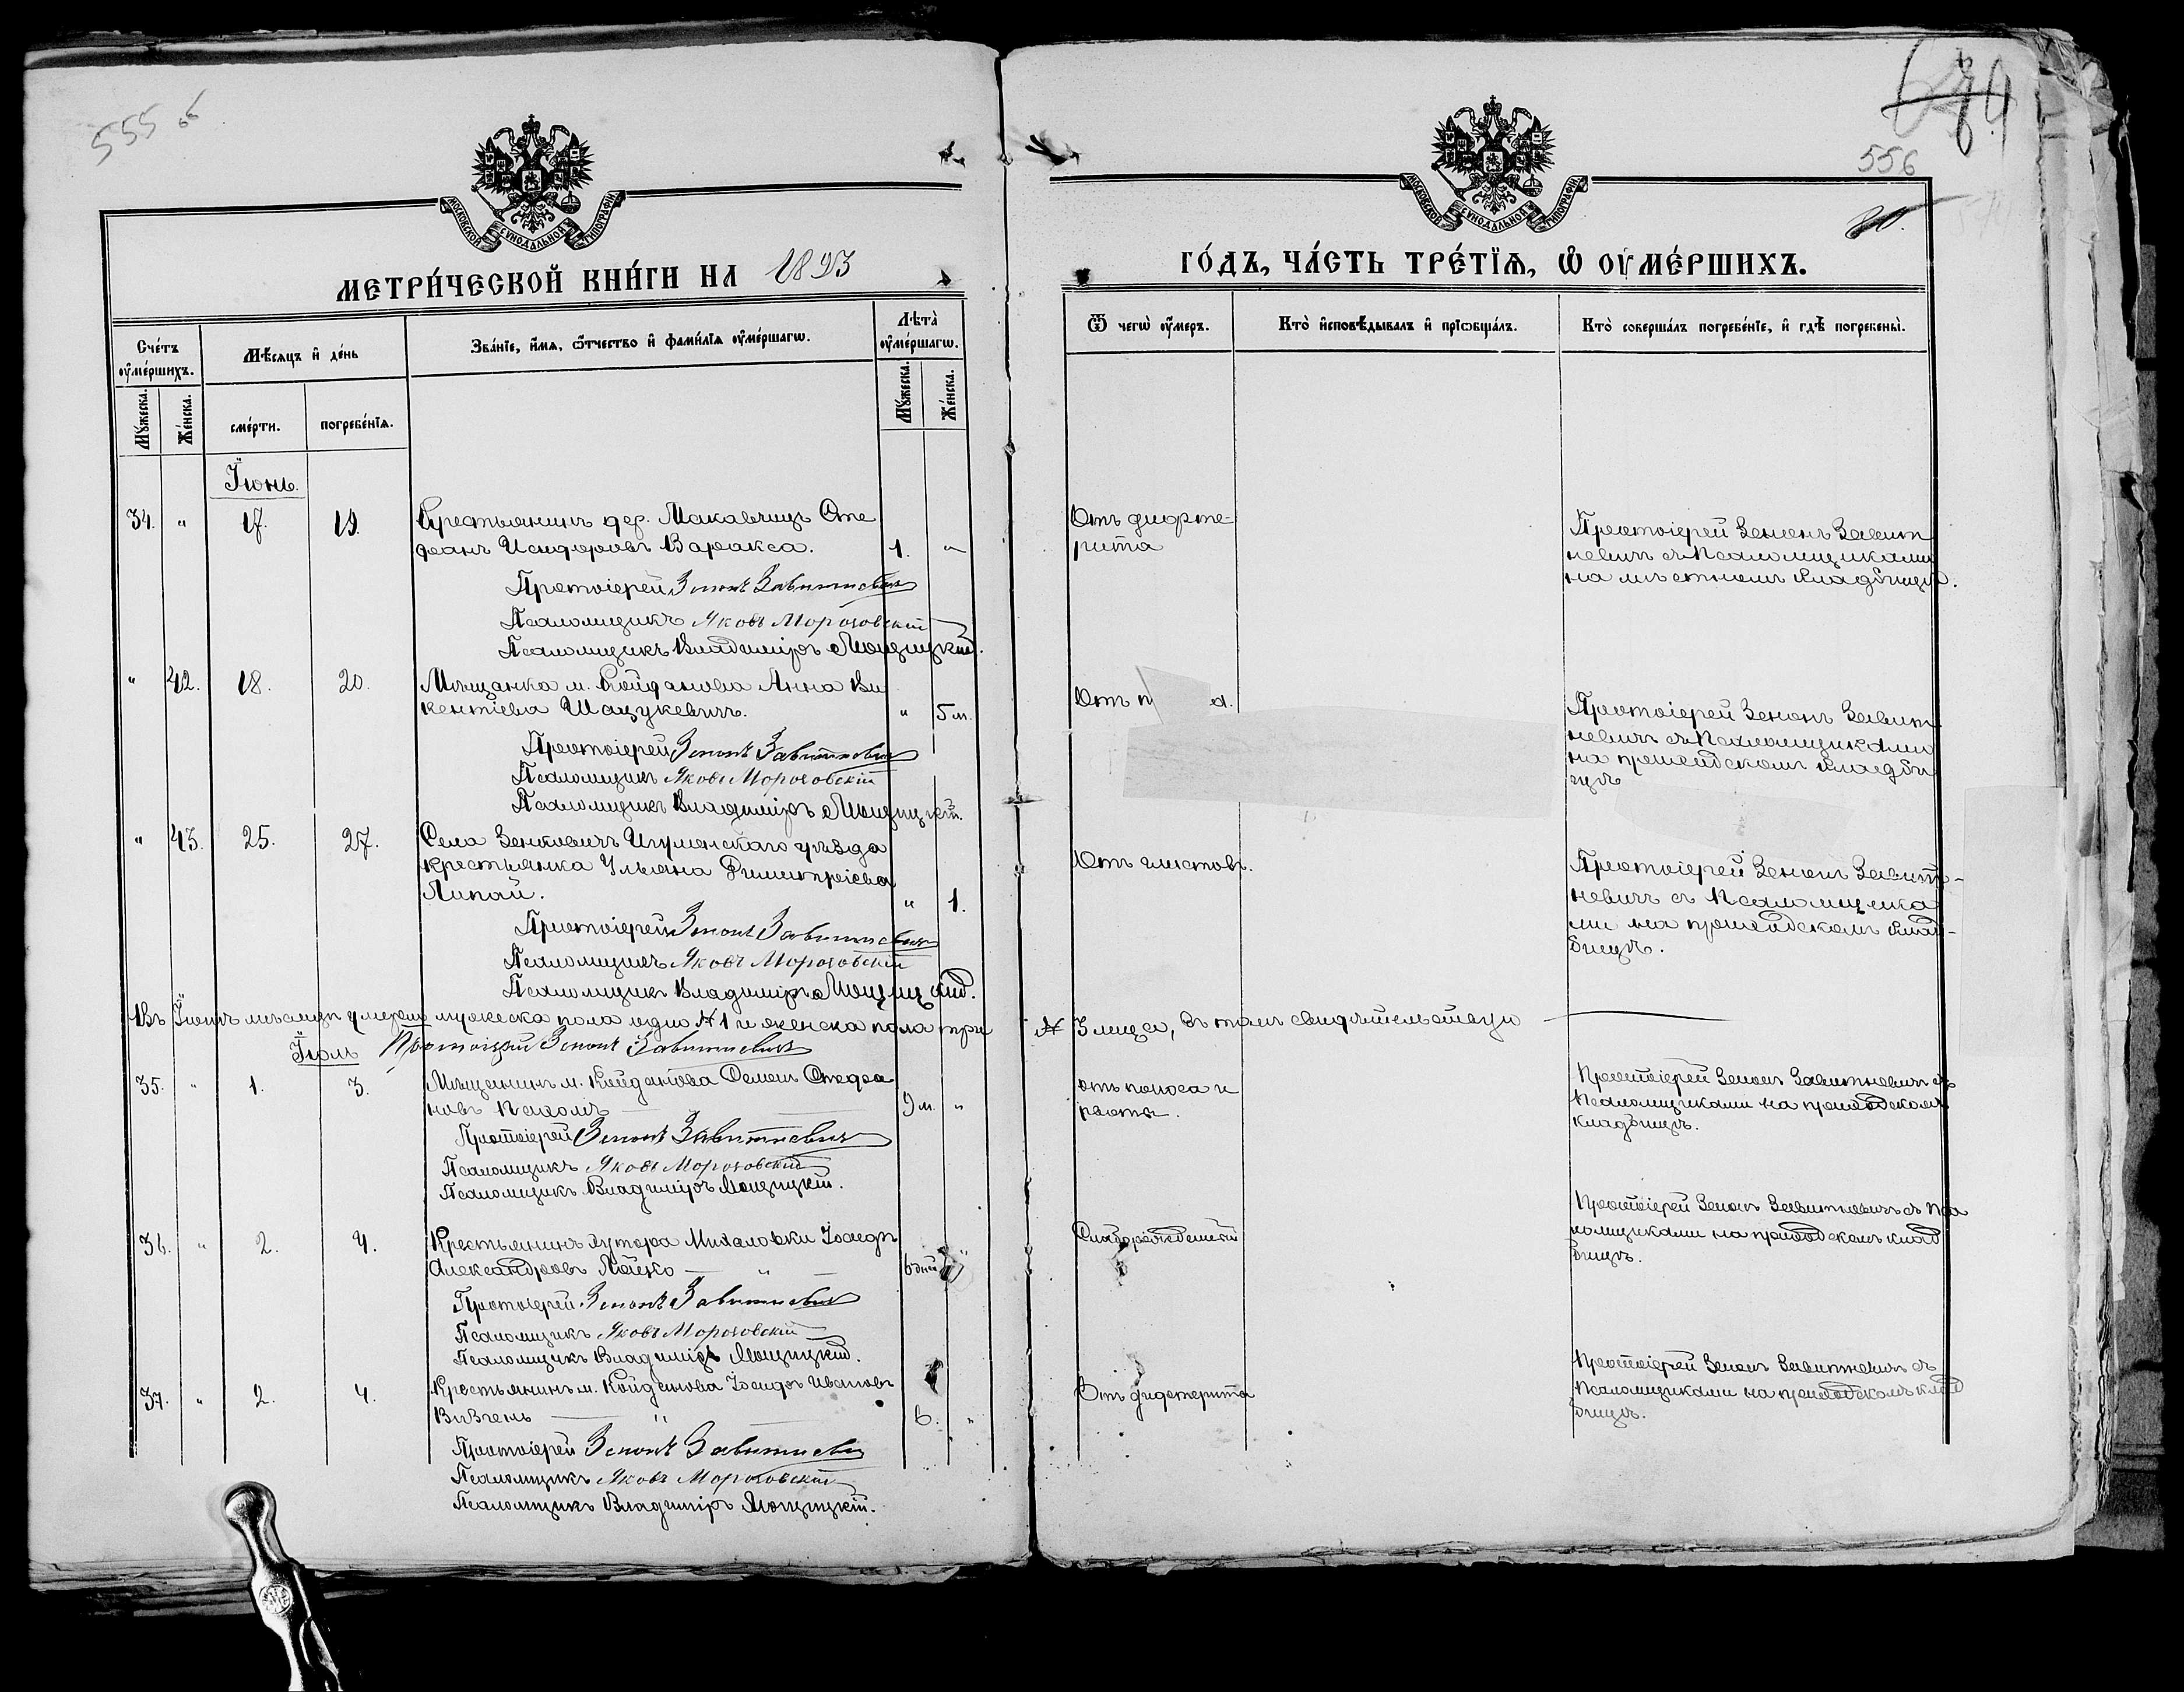 555 об
МОСКОВСКОЙ СѴНОДАЛЬНОЙ ТИПОГРАФІИ
МЕТРИ́ЧЕСКОЙ КНИ́ГИ НА 1893
Сче́тъ ᲂу҆ме́ршихъ.
Мѣ́сяцъ и҆ де́нь
Зва́нїе, и҆́мѧ, ѻ҆́тчество и҆ фами́лїѧ ᲂу҆ме́ршагѡ.
Лѣта̀ ᲂу҆ме́ршагѡ.
Мꙋ́жеска. Же́нска. сме́рти. погребе́нїѧ. Мꙋ́жеска. Же́нска.
Іюнь.
34. " 17. 19. Крестьянинъ дер. Макавчицъ Сте
фанъ Исидоровъ Варакса. 1. "
Протоіерей Зенонъ Завитневичъ
Псаломщикъ Яковъ Мороховскій
Псаломщикъ Владиміръ Мощицкій.
" 42. 18. 20. Мѣщанка м. Койданова Анна Ви
кентіева Шацукевичъ. " 5 м.
Протоіерей Зенонъ Завитневичъ
Псаломщикъ Яковъ Мороховскій
Псаломщикъ Владиміръ Мощицкій.
" 43. 25. 27. Села Зенковичъ Игуменскаго уѣзда
крестьянка Ульяна Димитріева
Липай. " 1.
Протоіерей Зенонъ Завитневичъ
Псаломщикъ Яковъ Мороховскій
Псаломщикъ Владиміръ Мощицкій.
Въ Іюнѣ мѣсяцѣ умерло мужеска пола одно № 1 и женска пола три
Іюль Протоіерей Зенонъ Завитневичъ
35. " 1. 3. Мѣщанинъ м. Койданова Семенъ Стефа
новъ Пахомъ 9 м. "
Протоіерей Зенонъ Завитневичъ
Псаломщикъ Яковъ Мороховскій
Псаломщикъ Владиміръ Мощицкій.
36. " 2. 4. Крестьянинъ хутора Михаловки Іосифъ
Александровъ Лойко " 6 дней "
Протоіерей Зенонъ Завитневичъ
Псаломщикъ Яковъ Мороховскій
Псаломщикъ Владиміръ Мощицкій.
37. " 2. 4. Крестьянинъ м. Койданова Іосифъ Ивановъ
" 6. "
Протоіерей Зенонъ Завитневичъ
Псаломщикъ Яковъ Мороховскій
Псаломщикъ Владиміръ Мощицкій.
556
МОСКОВСКОЙ СѴНОДАЛЬНОЙ ТИПОГРАФІИ
ГО́ДЪ, ЧА́СТЬ ТРЕ́ТЇѦ, Ѡ҆ ОУ҆МЕ́РШИХЪ.
Ѿ чегѡ̀ ᲂу҆́меръ.
Кто̀ и҆сповѣ́дывалъ и҆ прїѡбща́лъ.
Кто̀ соверша́лъ погребе́нїе, и҆ гдѣ̀ погребены̀.
Отъ дифте-
рита
Протоіерей Зенонъ Завит
невичъ съ Псаломщиками
на мѣстномъ кладбищѣ.
Отъ п а.
Протоіерей Зенонъ Завит
невичъ съ Псаломщиками
на приходскомъ кладби
щѣ
Отъ глистовъ.
Протоіерей Зенонъ Завит-
невичъ съ Псаломщика
ми на приходскомъ клад-
бищѣ.
№ 3 лица, въ томъ свидѣтельствую
отъ поноса и
рвоты.
Протоіерей Зенонъ Завитневичъ съ
Псаломщиками на приходскомъ
кладбищѣ.
Слаборожденный
Протоіерей Зенонъ Завитневичъ съ Пса
ломщиками на приходскомъ клад
бищѣ.
Отъ дифтерита
Протоіерей Зенонъ Завитневичъ съ
Псаломщиками на приходскомъ клад
бищѣ.